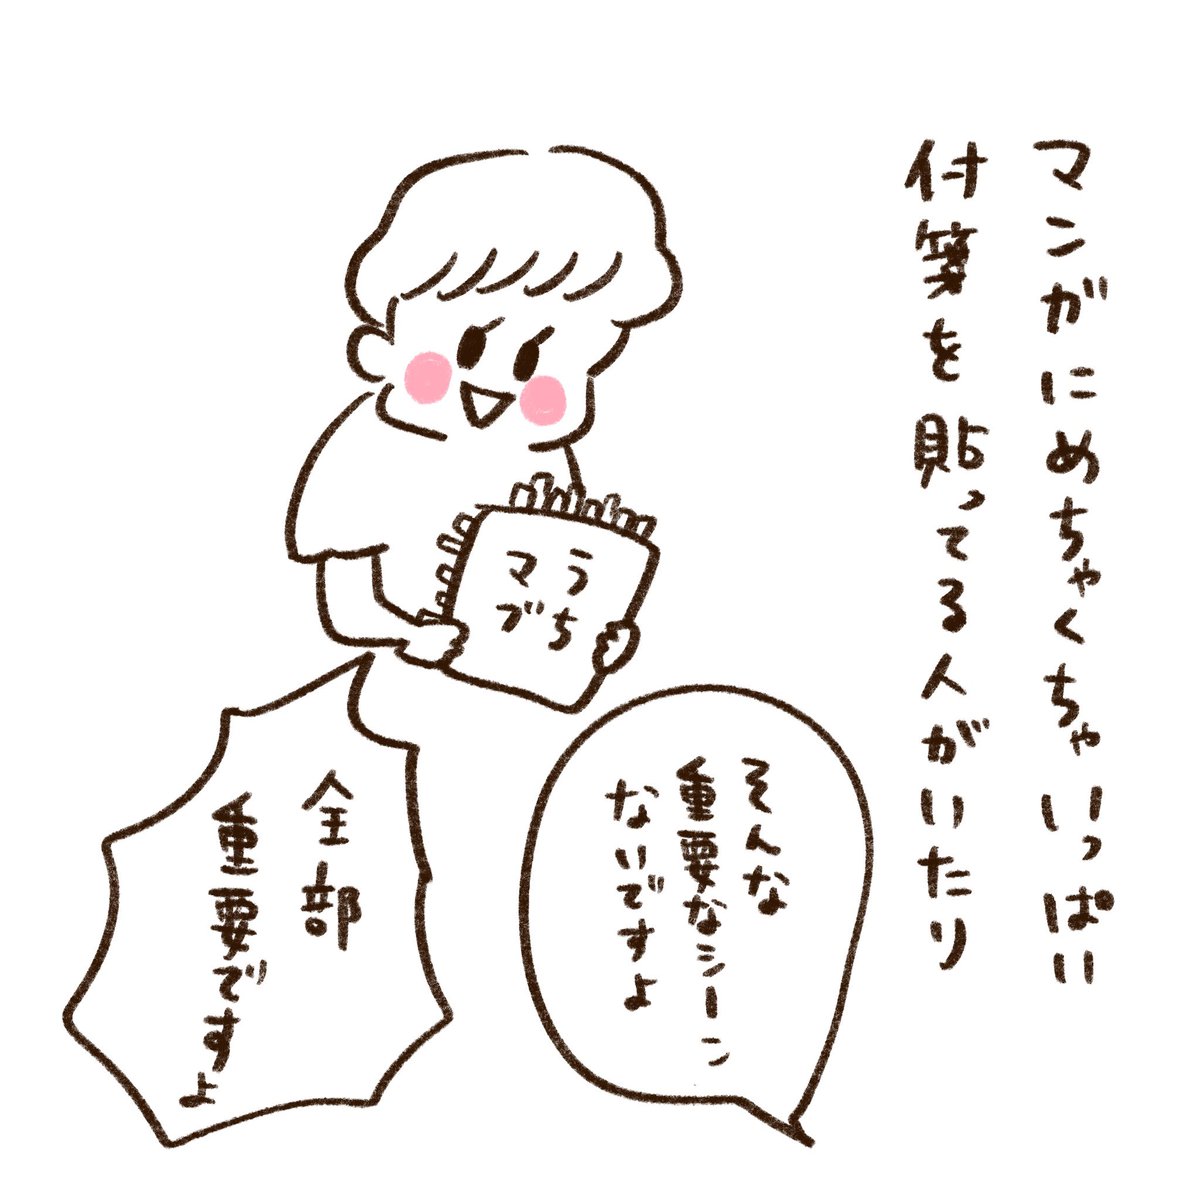 マンガにめちゃくちゃいっぱい
付箋を貼ってる人がいたり
うち
マブ
そんな
重要なシーン
ないですよ
全部
重要ですよ